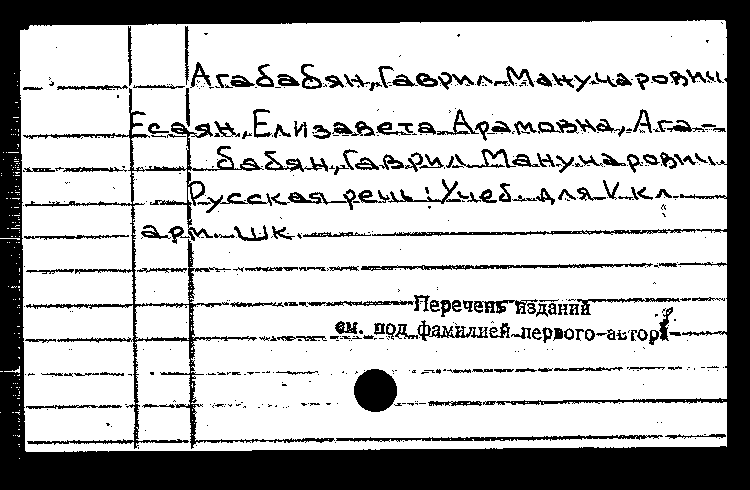 Агабабян, Гаврил Манучарович.
Есаян, Елизавета Арамовна, Ага-
бабян, Гаврил Манучарович.
Русская речь: Учеб. для V кл.
арм. шк.
Перечень изданий
см. под фамилией первого автора